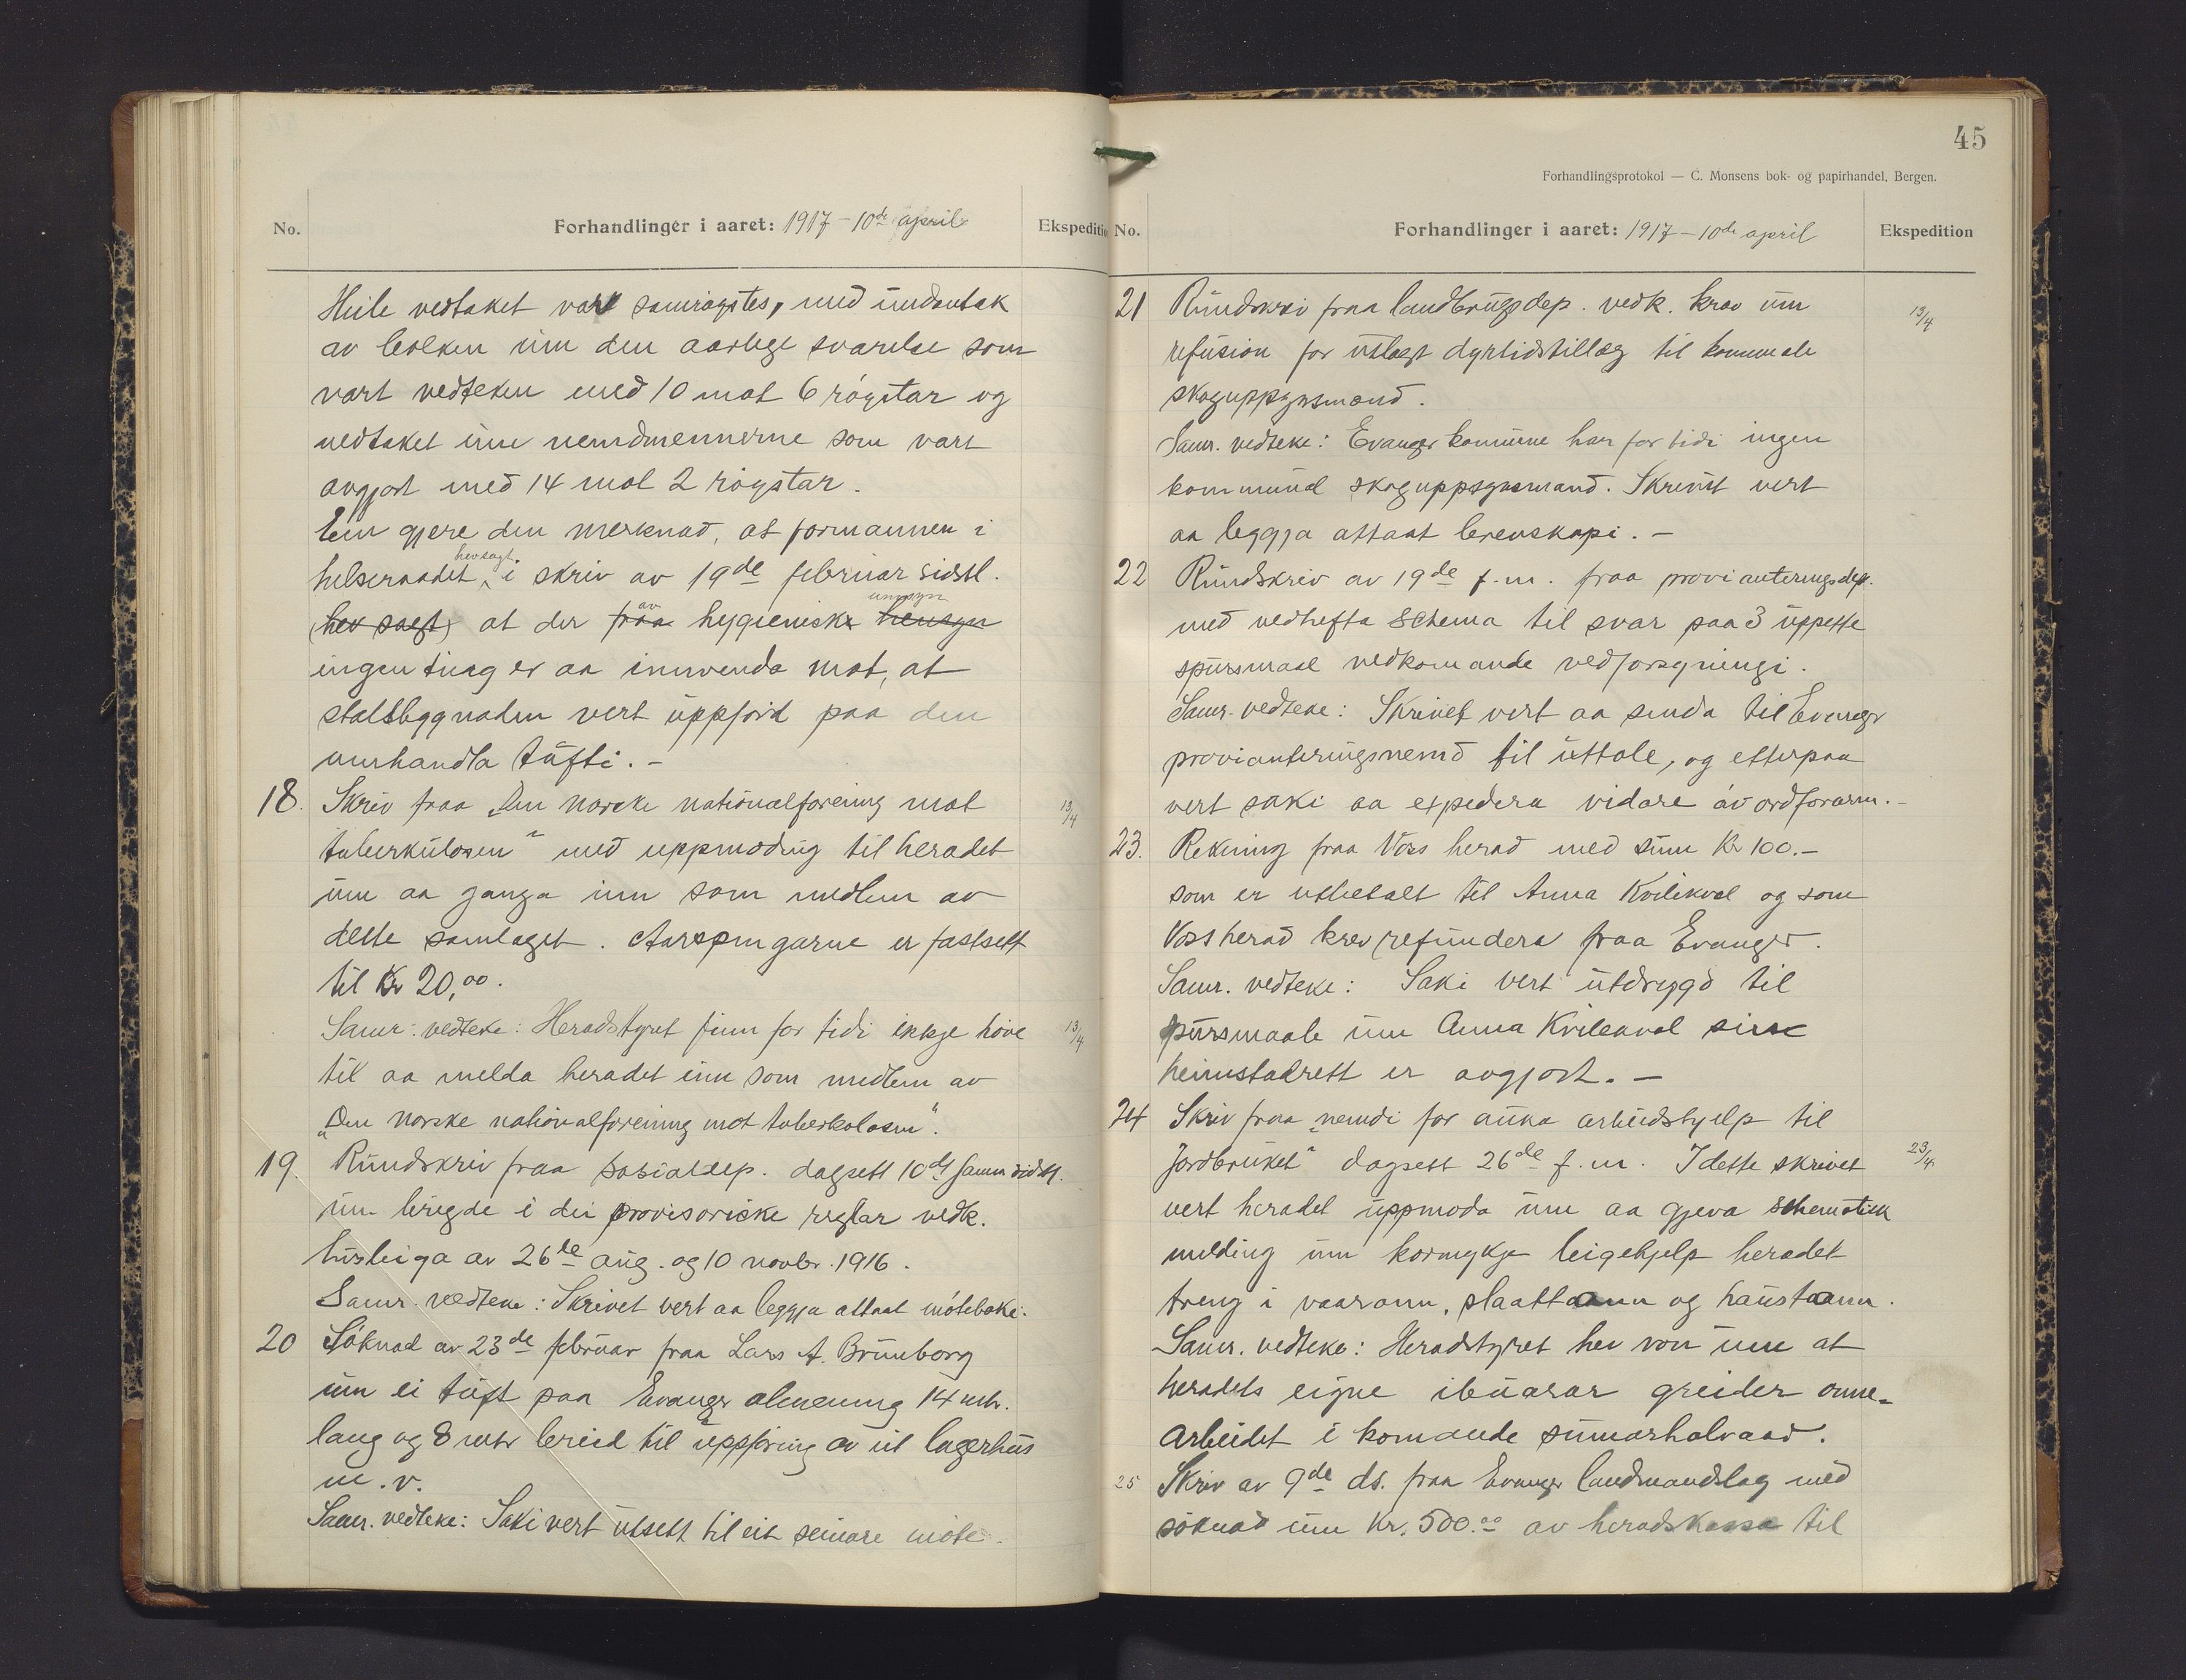 No.
Forhandlinger i aaret: 1917 - 10de april
Ekspedition
Heile vedtaket vart samrøystes, med undantak
av bolken um den aarlege svarelse som
vart vedteken med 10 mot 6 røystar og
vedtaket um nemdmennerne som vart
avgjort med 14 mot 2 røystar.
Ein gjere den merknad, at formannen i
helseraadet hev sagt i skriv av 19de februar sidstl.
(hev sagt) at der fraa av hygieniske hensyn umsyn
ingenting er aa innvenda mot, at
stallbygnaden vert uppførd paa den
umhandla tufti. -
18. Skriv fraa "Den norske nationalforening mot 13/4
tuberkulosen" med uppmoding til heradet
um aa ganga inn som medlem av
dette samlaget. Aarspengarne er fastsett
til Kr 20,00.
Samr. vedteke: Heradstyret finn for tidi ikkje høve 13/4
til aa melda heradet inn som medlem av
"Den norske nationalforening mot tuberkolosen".
19. Rundskriv fraa Sosialdep. dagsett 10de januar sidstl.
um brigde i dei provisoriske reglar vedk.
husleiga av 26de aug. og 10 novbr. 1916.
Samr. vedteke: Skrivet vert aa leggja attaat møteboki.
20 Søknad av 23de februar fraa Lars A. Brunborg
um ei tuft paa Evanger almenning 14 mtr.
lang og 8 mtr breid til uppføring av eit lagerhus
m.v.
Samr. vedteke: Saki vert utsett til eit seinare møte.
45
Forhandlingsprotokol — C. Monsens bok- og papirhandel, Bergen.
No.
Forhandlinger i aaret: 1917 - 10de april
Ekspedition
21 Rundskriv fraa landbrugsdep. vedk. krav um 13/4
refusion for utlagt dyrtidstillæg til kommunale
skoguppsynsmænd.
Samr. vedteke: Evanger kommune har for tidi ingen
kommunal skoguppsynsmand. Skrivet vert
aa leggja attaat brevskapi. -
22 Rundskriv av 19de f.m. fraa provianteringsdep.
med vedhefta schema til svar paa 3 uppsette
spursmaal vedkomande vedforsyningi.
Samr. vedteke: Skrivet vert aa senda til Evanger
provianteringsnemd til uttale, og etterpaa
vert saki aa expedera vidare av ordførarn. -
23. Rekning fraa Voss herad med sum Kr 100.-
som er utbetalt til Anna Kvilekval og som
Voss herad krev refundera fraa Evanger.
Samr. vedteke: Saki vert utdrygd til
spursmaale um Anna Kvilekval sin
heimstadrett er avgjort. -
24 Skriv fraa "nemdi for auka arbeidshjelp til
Jordbruket" dagsett 26de f.m. I dette skrivet 23/4
vert heradet uppmoda um aa gjeva schematisk
melding um kormykje leigehjelp heradet
treng i vaaronn, slaattaonn og haustaonn.
Samr. vedteke: Heradstyret hev von um at
heradets eigne ibuarar greider onne-
arbeidet i komande sumarhalvaar.
25 Skriv av 9de ds. fraa Evanger landmandslag med
søknad um Kr. 500.00 av heradskassa til